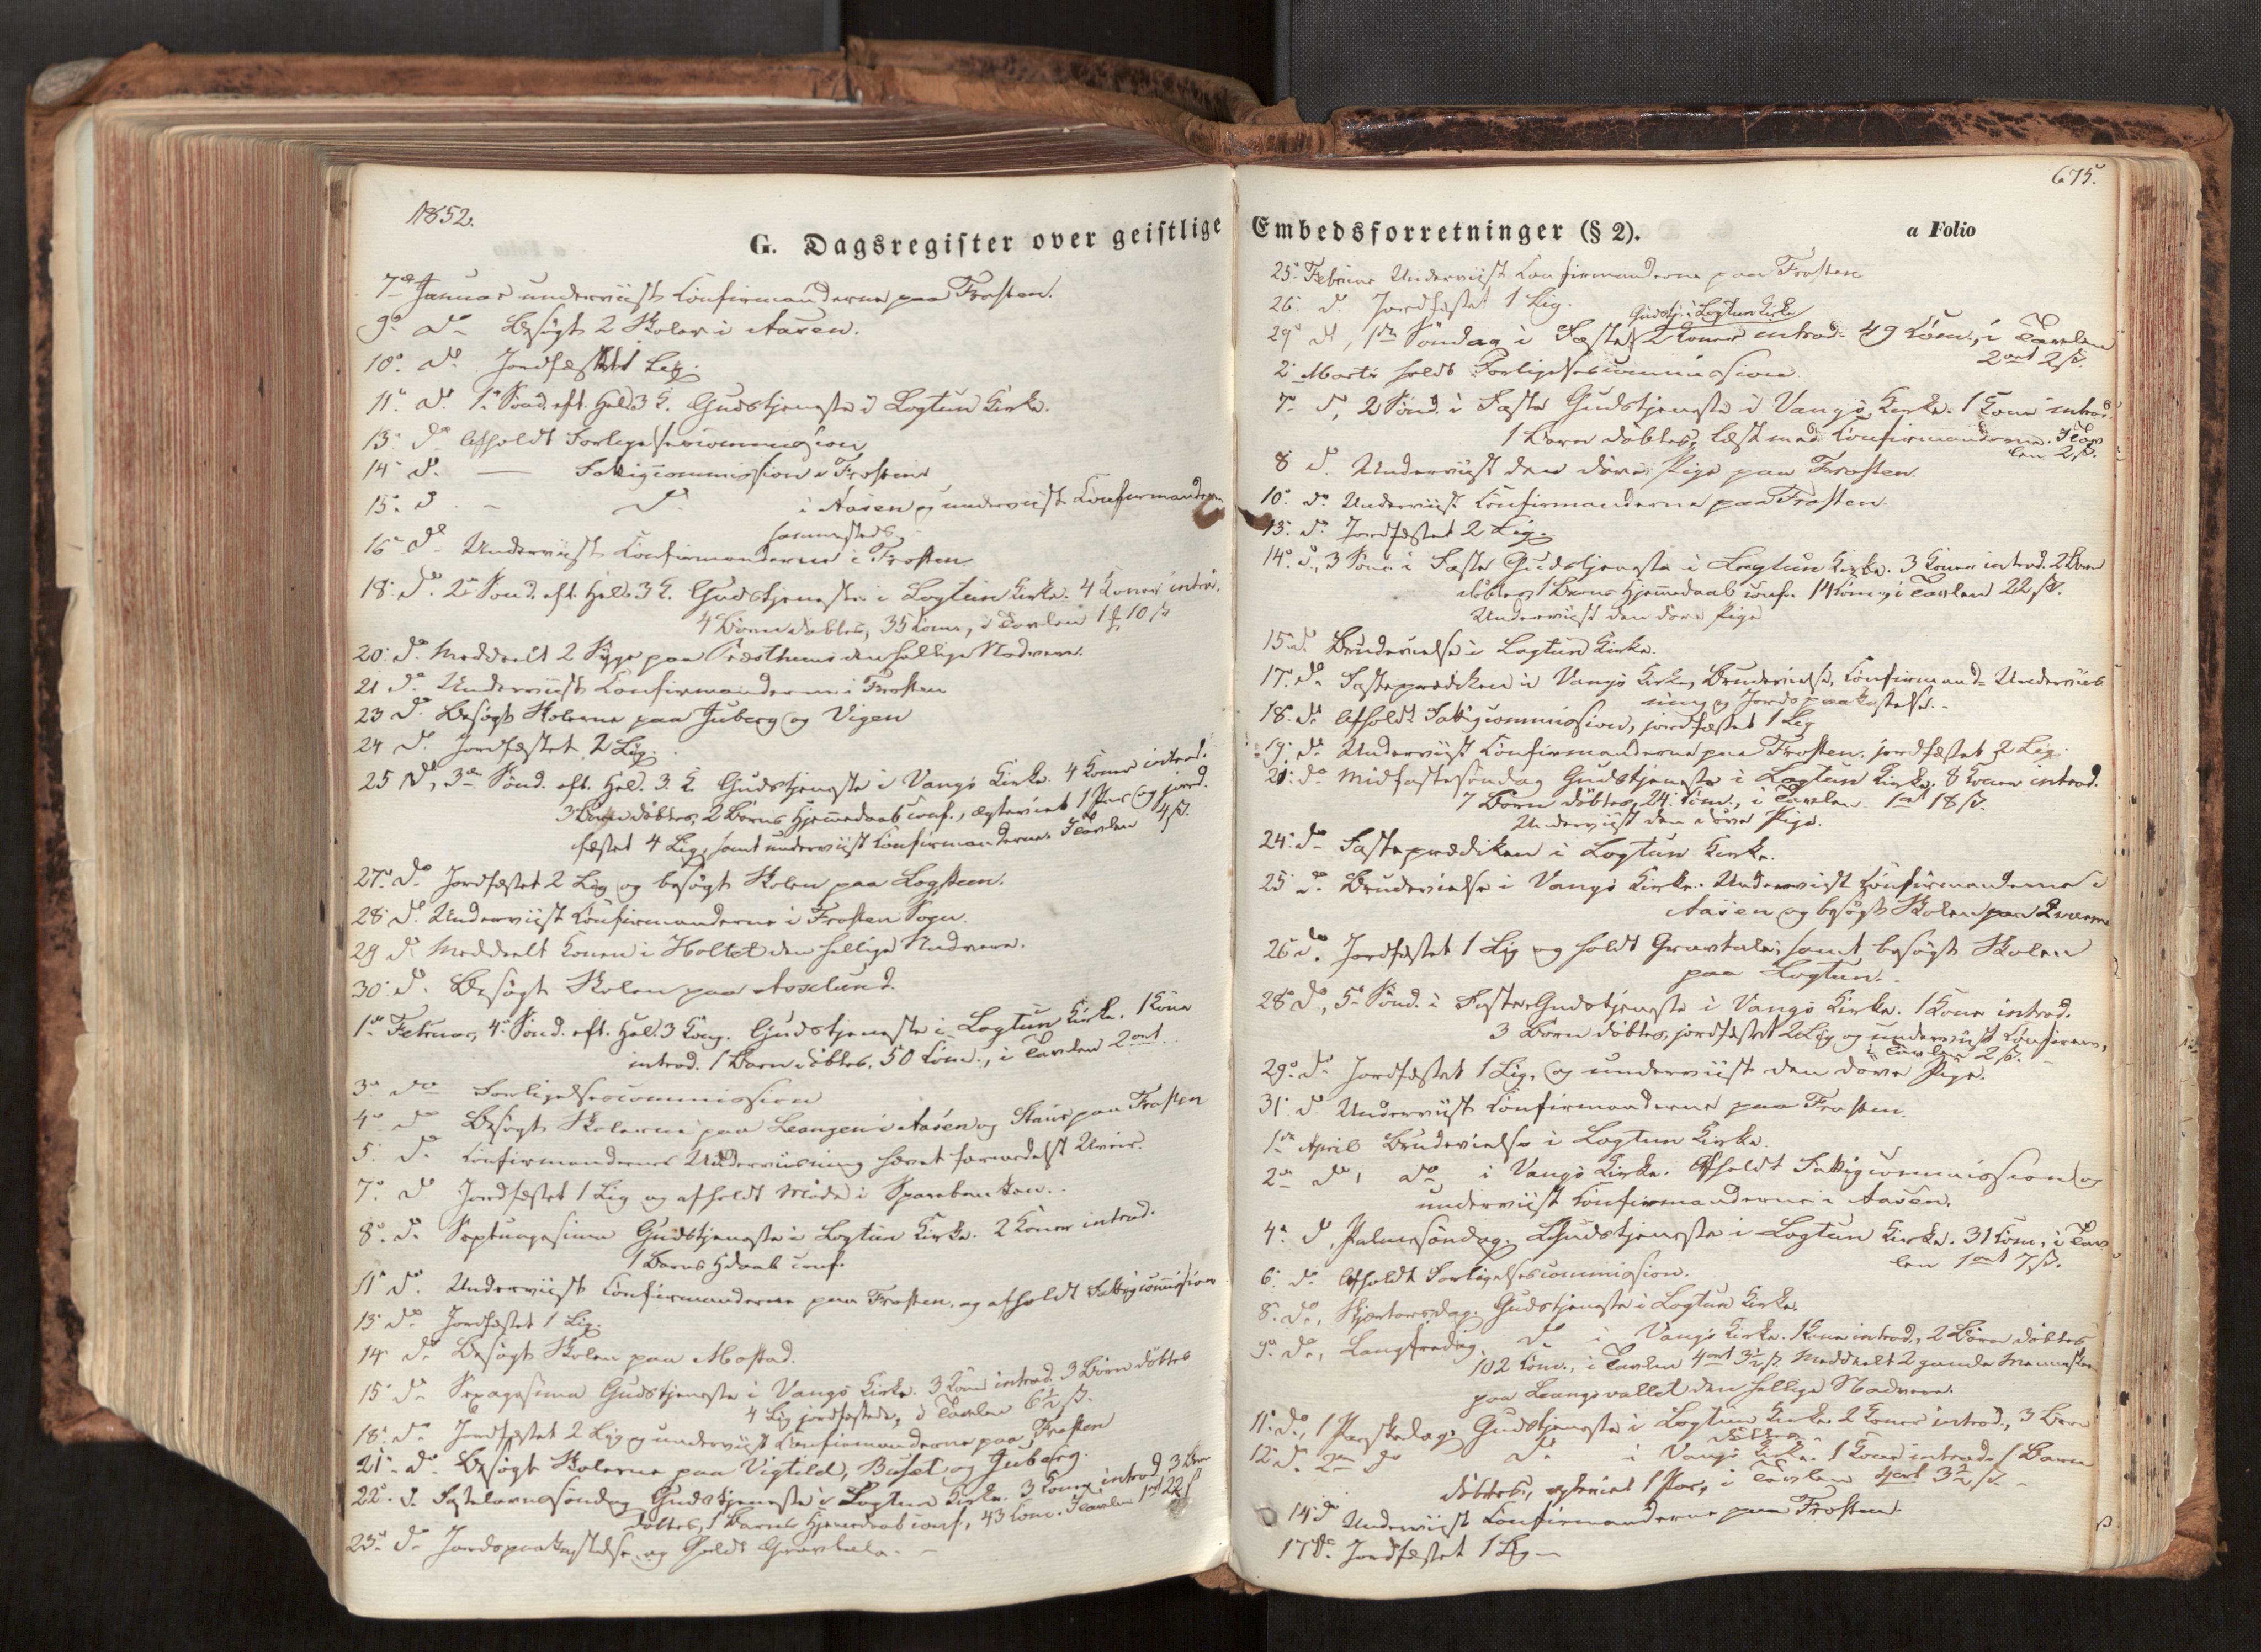 1852.
G. Dagsregister over geistlige
7de Januar underviist Confirmanderne paa Frosten.
9de do Besøgt 2 Skoler i Aasen.
10. do Jordfæstet 1 Lig.
11. do 1. Sønd. eft. Hel. 3 K. Gudstjeneste i Logtun Kirke.
13. do Afholdt Forligelsescommission
14. do — Fattigcommission i Frosten
15. d - do i Aasen og underviist Confirmanderne
sammesteds,
16. do Underviist Confirmanderne i Frosten.
18. do 2. Sønd. eft. Hel. 3 K. Gudstjeneste i Logtun Kirke. 4 Koner introd.
4 Børn døbtes, 35 Com., i Tavlen 10 ß
20. do Meddeelt 2 Syge paa den hellige Nadvere.
21 do Underviist Confirmanderne i Frosten
23 do Besøgt Skolerne paa Juberg og Vigen
24 do Jordfæstet 2 Lig.
25 do, 3die Sønd. eft. Hel. 3. K. Gudstjeneste i Vangs Kirke. 4 Koner introd.
3 Børn døbtes, 2 Børns Hjemmedaab conf., ægteviet 1 Par og jord-
fæstet 4 Lig, samt underviist Confirmanderne. I Tavlen 4 ß.
27. do Jordfæstet 2 Lig og besøgt Skolen paa Logsteen.
28. do Underviist Confirmanderne i Frosten Sogn.
29 do Meddeelt Konen i Holtet den hellige Nadvere.
30. do Besøgt Skolen paa Asselund.
1de Februar, 4. Sønd. eft. Hel. 3 Kong. Gudstjeneste i Logtun Kirke. 1 Kone
introd. 1 Barn døbtes. 50 Com., i Tavlen 2 ort.
3. do Forligelsescommission
4. do Besøgt Skolerne paa Leangen i Aasen og paa Frosten
5. do Confirmandernes Underviisning hævet formedelst Uveir.
7. do Jordfæstet 1 Lig og afholdt Møde i Sparebanken.
8. do Septuagesima Gudstjeneste i Logtun Kirke. 2 Koner introd.
1 Barns Hdaab conf.
11 do Underviist Confirmanderne paa Frosten, og afholdt Fattigcommission
13. do Jordfæstet 1 Lig.
14 do Besøgt Skolen paa Mostad.
15 do Sexagesima Gudstjeneste i Vangs Kirke. 3 Koner introd. 3 Børn døbtes
4 Lig jordfæstede, i Tavlen 6½ ß.
18. do Jordfæstet 2 Lig og underviist Confirmanderne paa Frosten
21. do Besøgt Skolerne paa Vigtild, Buset og Juberg.
22. d. Fastelavnssøndag Gudstjeneste i Logtun Kirke. 3 Koner introd. 3 Børn
døbtes, 1 Barns Hjemmedaab conf., 43 Com. I Tavlen 1 ort 22 ß
23. do Jordspaakastelse og holdt Gravtale.
675.
Embedsforretninger (§ 2).
a Folio
25. Februar Underviist Confirmanderne paa Frosten
26. do Jordfæstet 1 Lig.
Gudstj. i Logtun Kirke
29 do, 1ste Søndag i Faste 2 Koner introd. 49 Com., i Tavlen
2 ort 2 ß.
2. Marts holdt Forligelsescommission.
7. d, 2 Sønd. i Faste Gudstjeneste i Vangs Kirke. 1 Kone introd.
1 Barn døbtes, læst med Confirmanderne. I Tav-
len 2 ß.
8 do Underviist den døve Pige paa Frosten.
10. do Underviist Confirmanderne paa Frosten.
13. do Jordfæstet 2 Lig.
14. d, 3 Sønd. i Faste Gudstjeneste i Logtun Kirke. 3 Koner introd. 2 Børn
døbtes, 1 Barns Hjemmedaab conf. 14 Com., i Tavlen 22 ß.
Underviist den døve Pige
15. do Brudevielse i Logtun Kirke.
17. do Fasteprædiken i Vangs Kirke, Brudevielse, Confirmand-Underviis-
ning og Jordspaakastelse.
18. do Afholdt Fattigcommission, jordfæstet 1 Lig
19. do Underviist Confirmanderne paa Frosten. jordfæstet 2 Lig.
21. do Midfastesøndag Gudstjeneste i Logtun Kirke. 8 Koner introd.
7 Børn døbtes, 24. Com., i Tavlen 1 ort 18 ß.
Underviist den døve Pige.
24. do Fasteprædiken i Logtun Kirke.
25 do Brudevielse i Vangs Kirke. Underviist Confirmanderne i
Aasen og besøgt Skolen paa
26 do Jordfæstet 1 Lig og holdt Gravtale, samt besøgt Skolen
paa Logtun.
28. do, 5. Sønd. i Faste Gudstjeneste i Vangs Kirke. 1 Kone introd.
3 Børn døbtes, jordfæstet 2 Lig og underviist Confirm.,
i Tavlen 2 ß.
29. do Jordfæstet 1 Lig, og underviist den døve Pige.
31. do Underviist Confirmanderne paa Frosten.
1ste April Brudevielse i Logtun Kirke.
2den do, do i Vangs Kirke. Afholdt Fattigcommission og
underviist Confirmanderne i Aasen.
4. d, Palmesøndag. Gudstjeneste i Logtun Kirke. 31 Com., i Tav-
len 1 ort 7 ß.
6. do Afholdt Forligelsescommission.
8. do, Skjærtorsdag. Gudstjeneste i Logtun Kirke.
9. do, Langfredag. do i Vangs Kirke. 1 Kone introd., 2 Børn døbtes
102 Com., i Tavlen 4 ort 3½ ß Meddeelt 2 gamle Mennesker
paa Leangsvallet den hellige Nadvere.
11. do, 1 Paaskedag. Gudstjeneste i Logtun Kirke 2 Koner introd., 3 Børn
døbtes
12. d. 2den do do i Vangs Kirke. 1 Kone introd. 1 Barn
døbtes, ægteviet 1 Par, i Tavlen 4 ort 3½ ß.
14. do Underviist Confirmanderne paa Frosten.
17 do. Jordfæstet 1 Lig